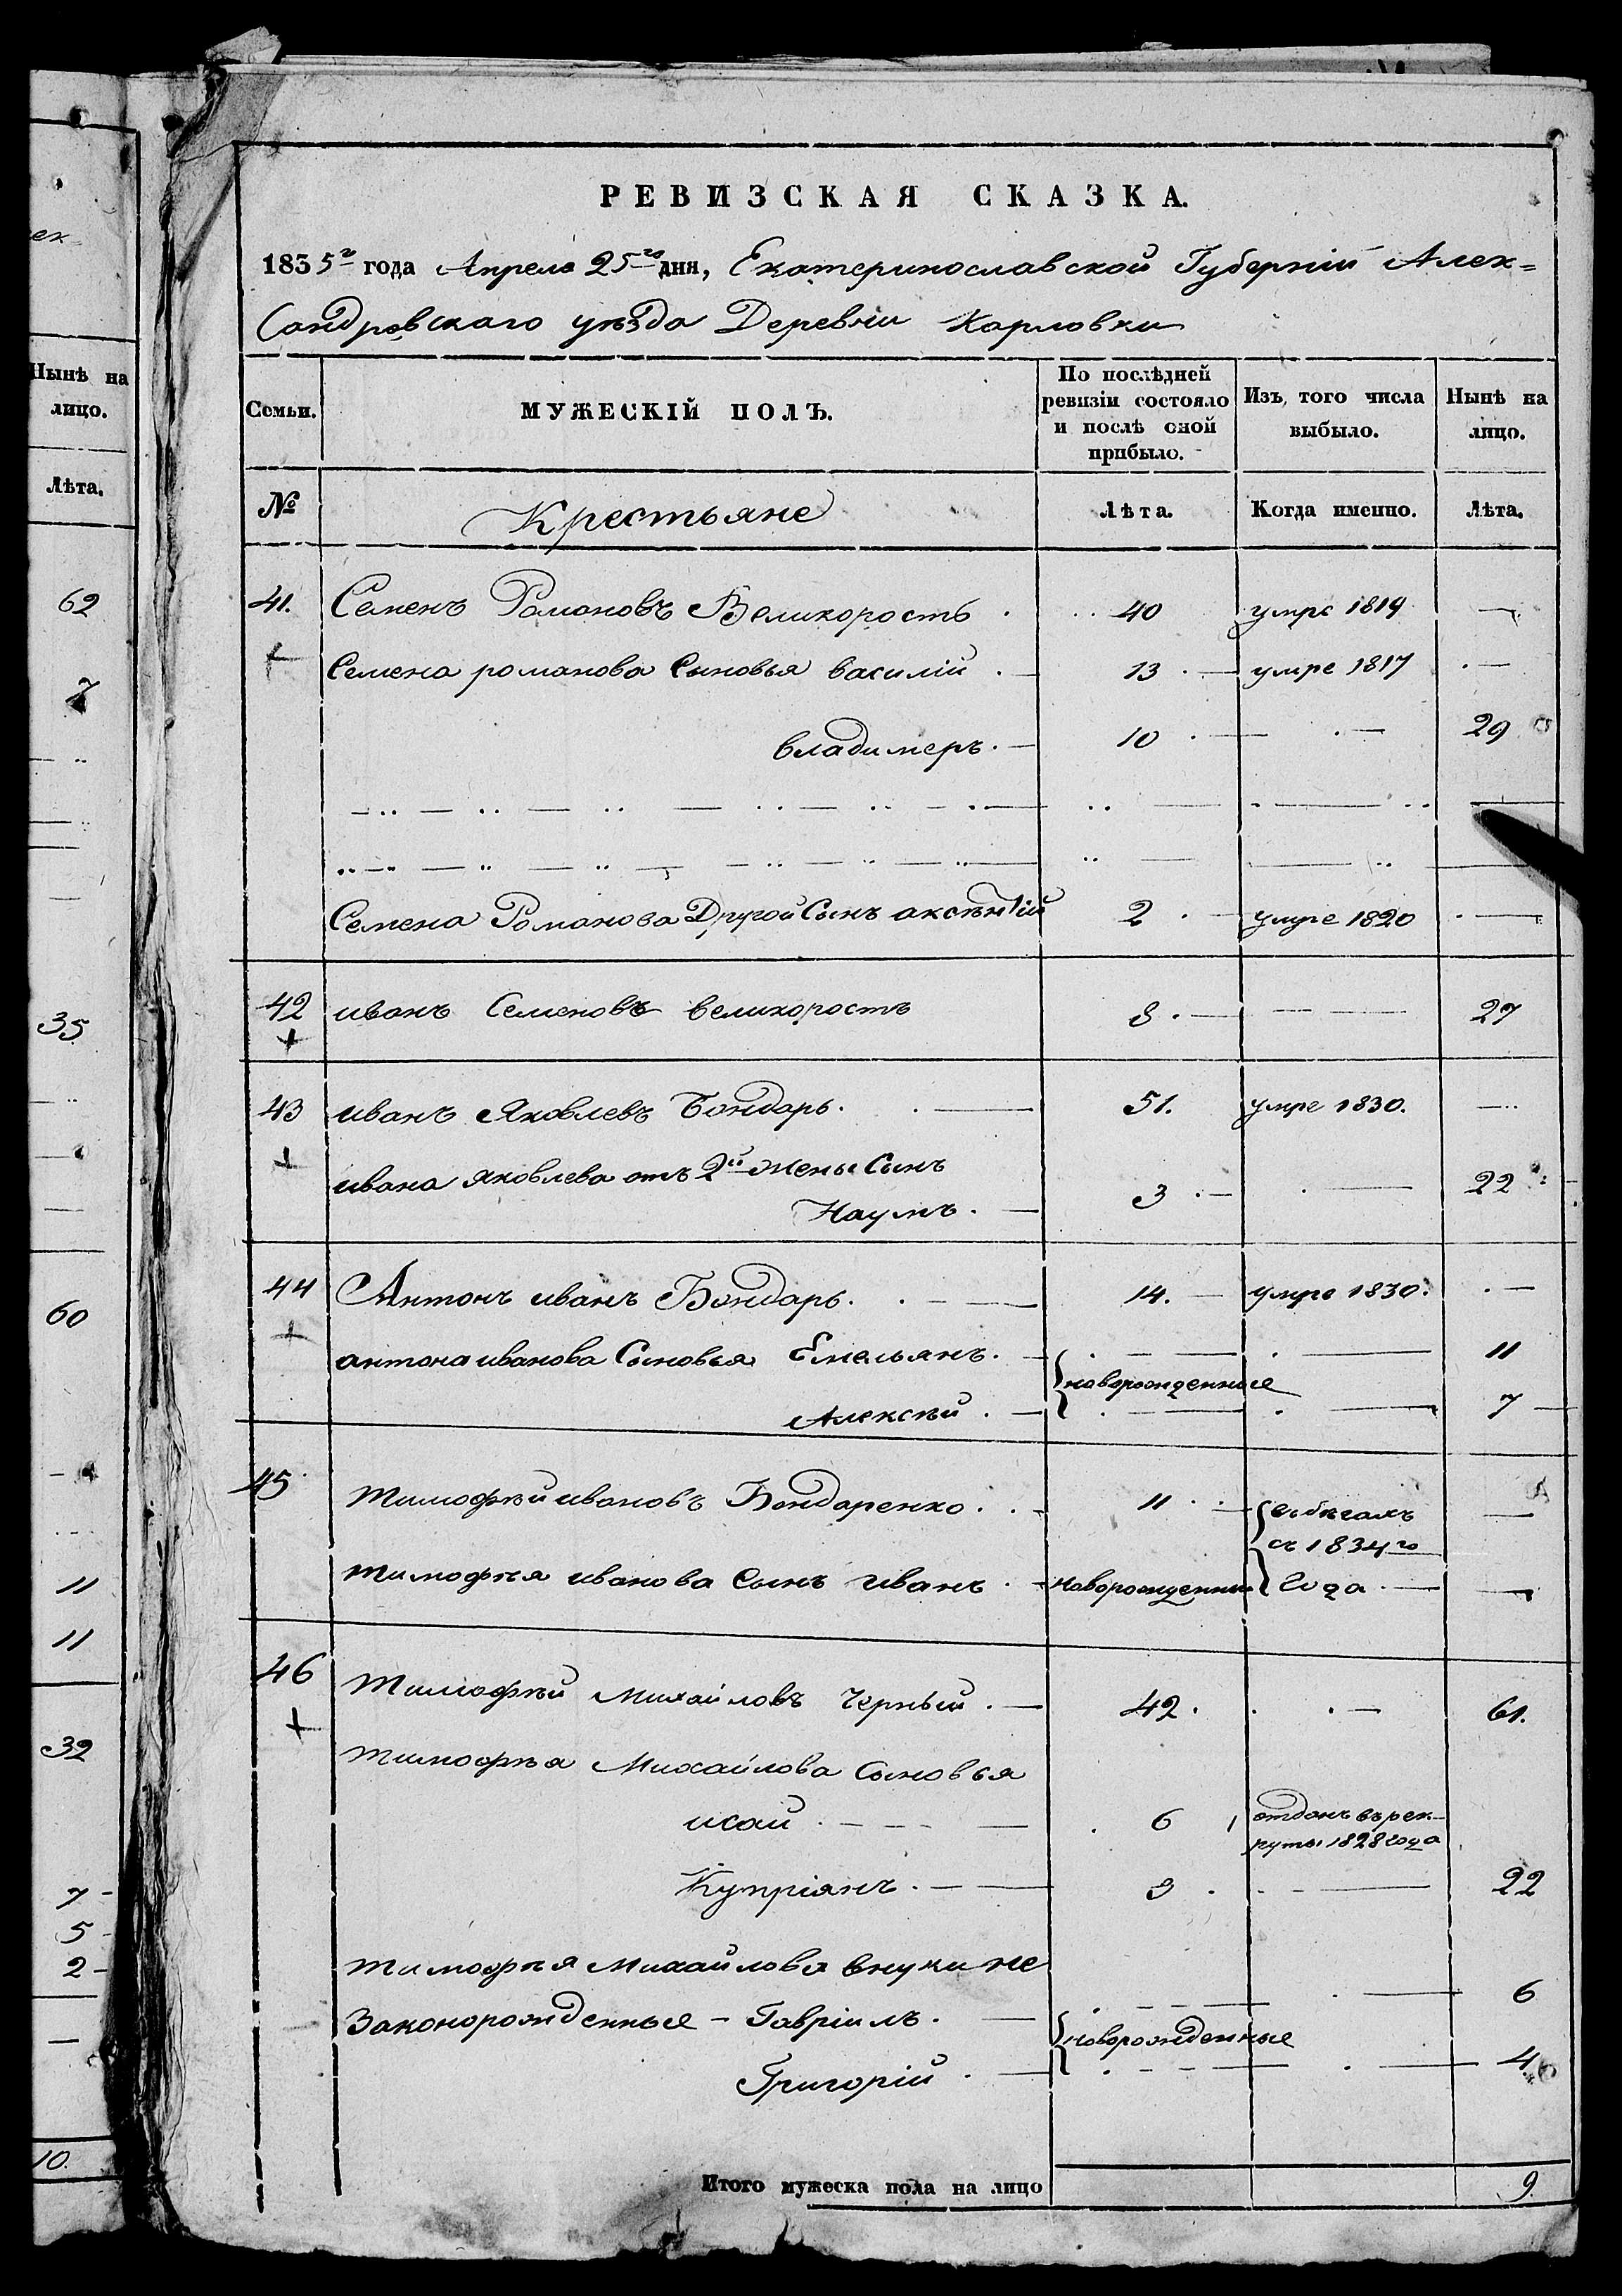 ек
Нынѣ на
лицо.
Лѣта.
62
7
35
60
11
11
32
7
5
2
10.
РЕВИЗСКАЯ СКАЗКА.
1835го года Апреля 25го дня, Екатеринославской Губерніи Алек=
Сандровскаго уѣзда Деревни Карловки
Семьи. МУЖЕСКІЙ ПОЛЪ. По послѣдней ревизіи состояло и послѣ оной прибыло. Изъ того числа выбыло. Нынѣ на лицо.
№ Крестьяне Лѣта. Когда именно. Лѣта.
41. Семенъ Романовъ Великорость 40 умре 1819 —
+ Семена романова Сыновья василій 13 умре 1817 —
владимеръ. 10 — 29
Семена Романова Другой Сынъ аксентій 2 умре 1820 —
42 иванъ Семеновъ великорость 8 — 27
+
43 иванъ Яковлевъ Бондарь. 51. умре 1830. —
+ ивана яковлева отъ 2й жены Сынъ
Наумъ. 3 — 22
44 Антонъ иванъ Бондарь. 14. умре 1830. —
+ антона иванова Сыновья Емельянъ. — 11
новорожденные
Алексѣй — 7
45 тимофѣй ивановъ Бондаренко. 11 въбѣгахъ —
съ 1834го
тимофѣя иванова Сынъ иванъ новорожденны года —
46 тимофѣй Михайловъ Черный. 42. — 61.
+ тимофѣя Михайлова Сыновья
исай 6 отданъ въ рек-
руты 1828 года
Купріянъ. 3 — 22
тимофѣя Михайлова внуки не
Законорожденные - Гавріилъ. — 6
новорожденные
Григорій — 4
Итого мужеска пола на лицо 9.